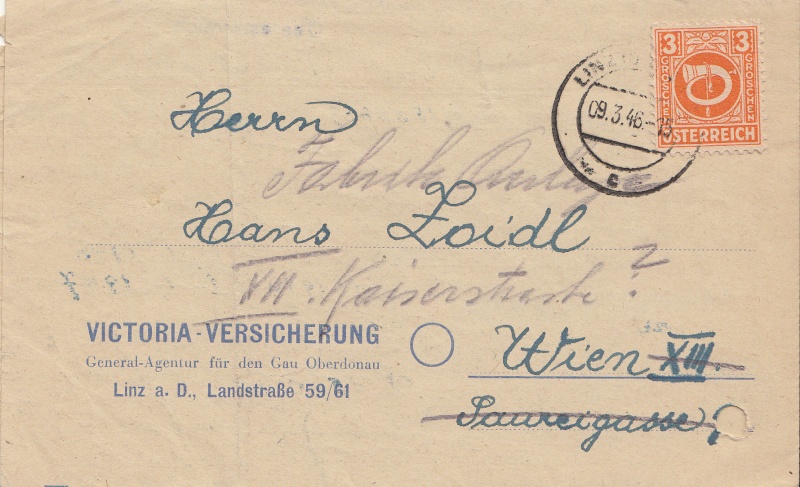 3 3
GROSCHEN GROSCHEN
ÖSTERREICH
LINZ
09.3.46.-15
Herrn
Fabrik
Hans Zoidl
VII. Kaiserstraße?
VICTORIA-VERSICHERUNG
General-Agentur für den Gau Oberdonau
Linz a. D., Landstraße 59/61
Wien XIII.